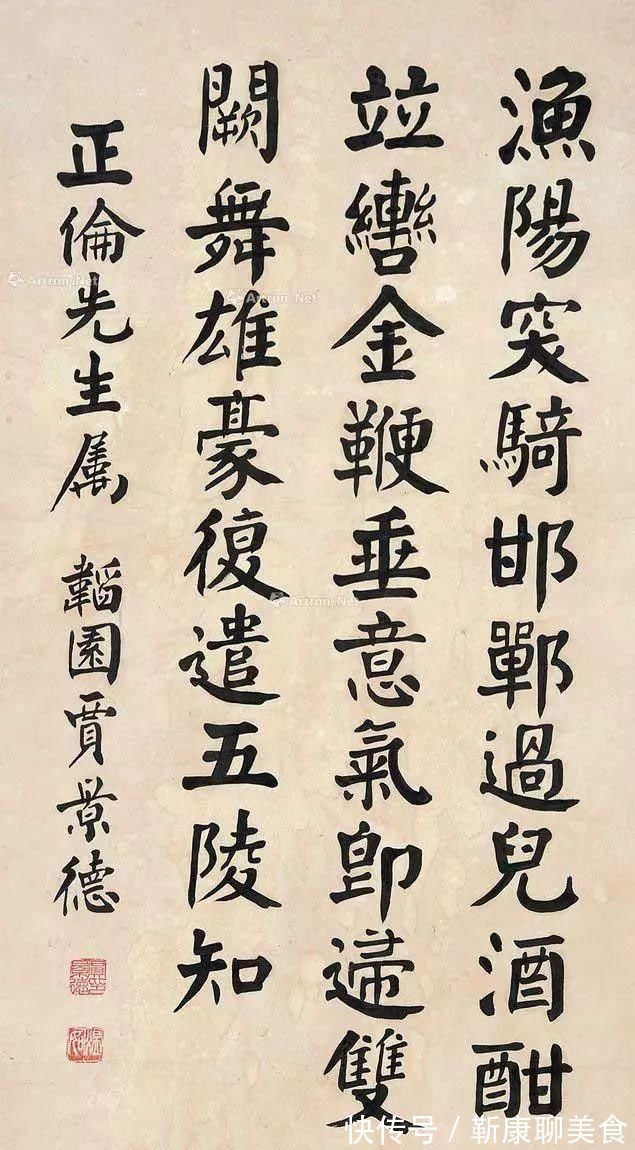 漁陽突騎邯鄲過兒酒酣
竝轡金鞭垂意氣卽歸雙
闕舞雄豪復遣五陵知
正倫先生屬 韜園賈景德
Artron.Net
Artron.Net
Artron.Net
快传号／靳康聊美食